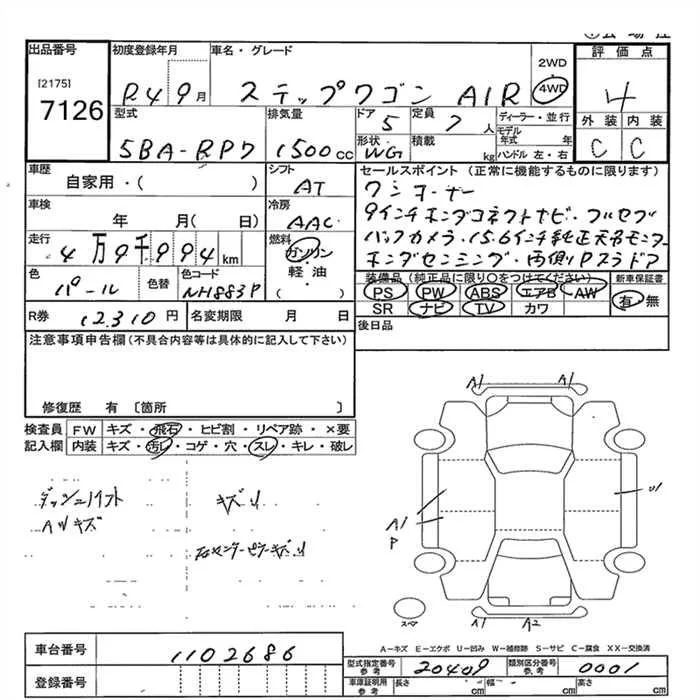 出品番号
[2175]
7126
初度登録年月
R4 9月
車名・グレード
ステップワゴン AIR
2WD
4WD
評価点
4
外装 内装
C C
型式
5BA-RP7
排気量
1500cc
ドア
5
形状
WG
定員
7人
積載
kg
ディーラー・並行
モデル年式 年
ハンドル 左・右
車歴
自家用・( )
シフト
AT
車検
年 月( 日)
冷房
AAC
走行
4万9千994km
燃料
ガソリン
軽油・
( )
色
パール
色替
色コード
NH883P
R券
12,310円
名変期限 月 日
セールスポイント(正常に機能するものに限ります)
ワンオーナー
9インチホンダコネクトナビ・フルセグ
バックカメラ・15.6インチ純正天吊モニター
ホンダセンシング・両側Pスラドア
装備品(純正品に限り○をつけてください)
PS PW ABS エアB AW
SR ナビ TV カワ
新車保証書
有・無
後日品
注意事項申告欄(不具合内容等は具体的に記入して下さい)
修復歴 有〔箇所 〕
検査員記入欄
FW キズ・飛石・ヒビ割・リペア跡・×要
内装 キズ・汚レ・コゲ・穴・スレ・キレ・破レ
キズU
A1 A1
A1
P
U1
A1 A2
A-キズ E-エクボ U-凹み W-補修跡 S-サビ C-腐食 XX-交換済
車台番号
1102686
登録番号
型式指定番号参考
20409
類別区分番号参考
0001
車庫証明用参考
長さ cm 幅 cm 高さ cm